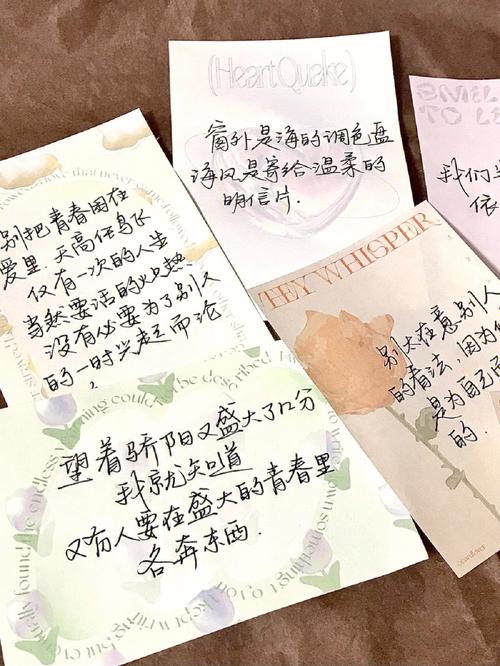 (Heart Quake)
窗外是海的调色盘
海风是寄给温柔的
明信片.
SMEL
TO LE
我们
依
别把青春困在
爱里.天高任鸟飞
仅有一次的人生
当然要活的火热
没有必要为了别人
的一时兴起而沦
THEY WHISPER
别太在意别人
的看法,因为
是为自己
的.
望着骄阳又盛大了几分
我就知道
又有人要在盛大的青春里
各奔东西.